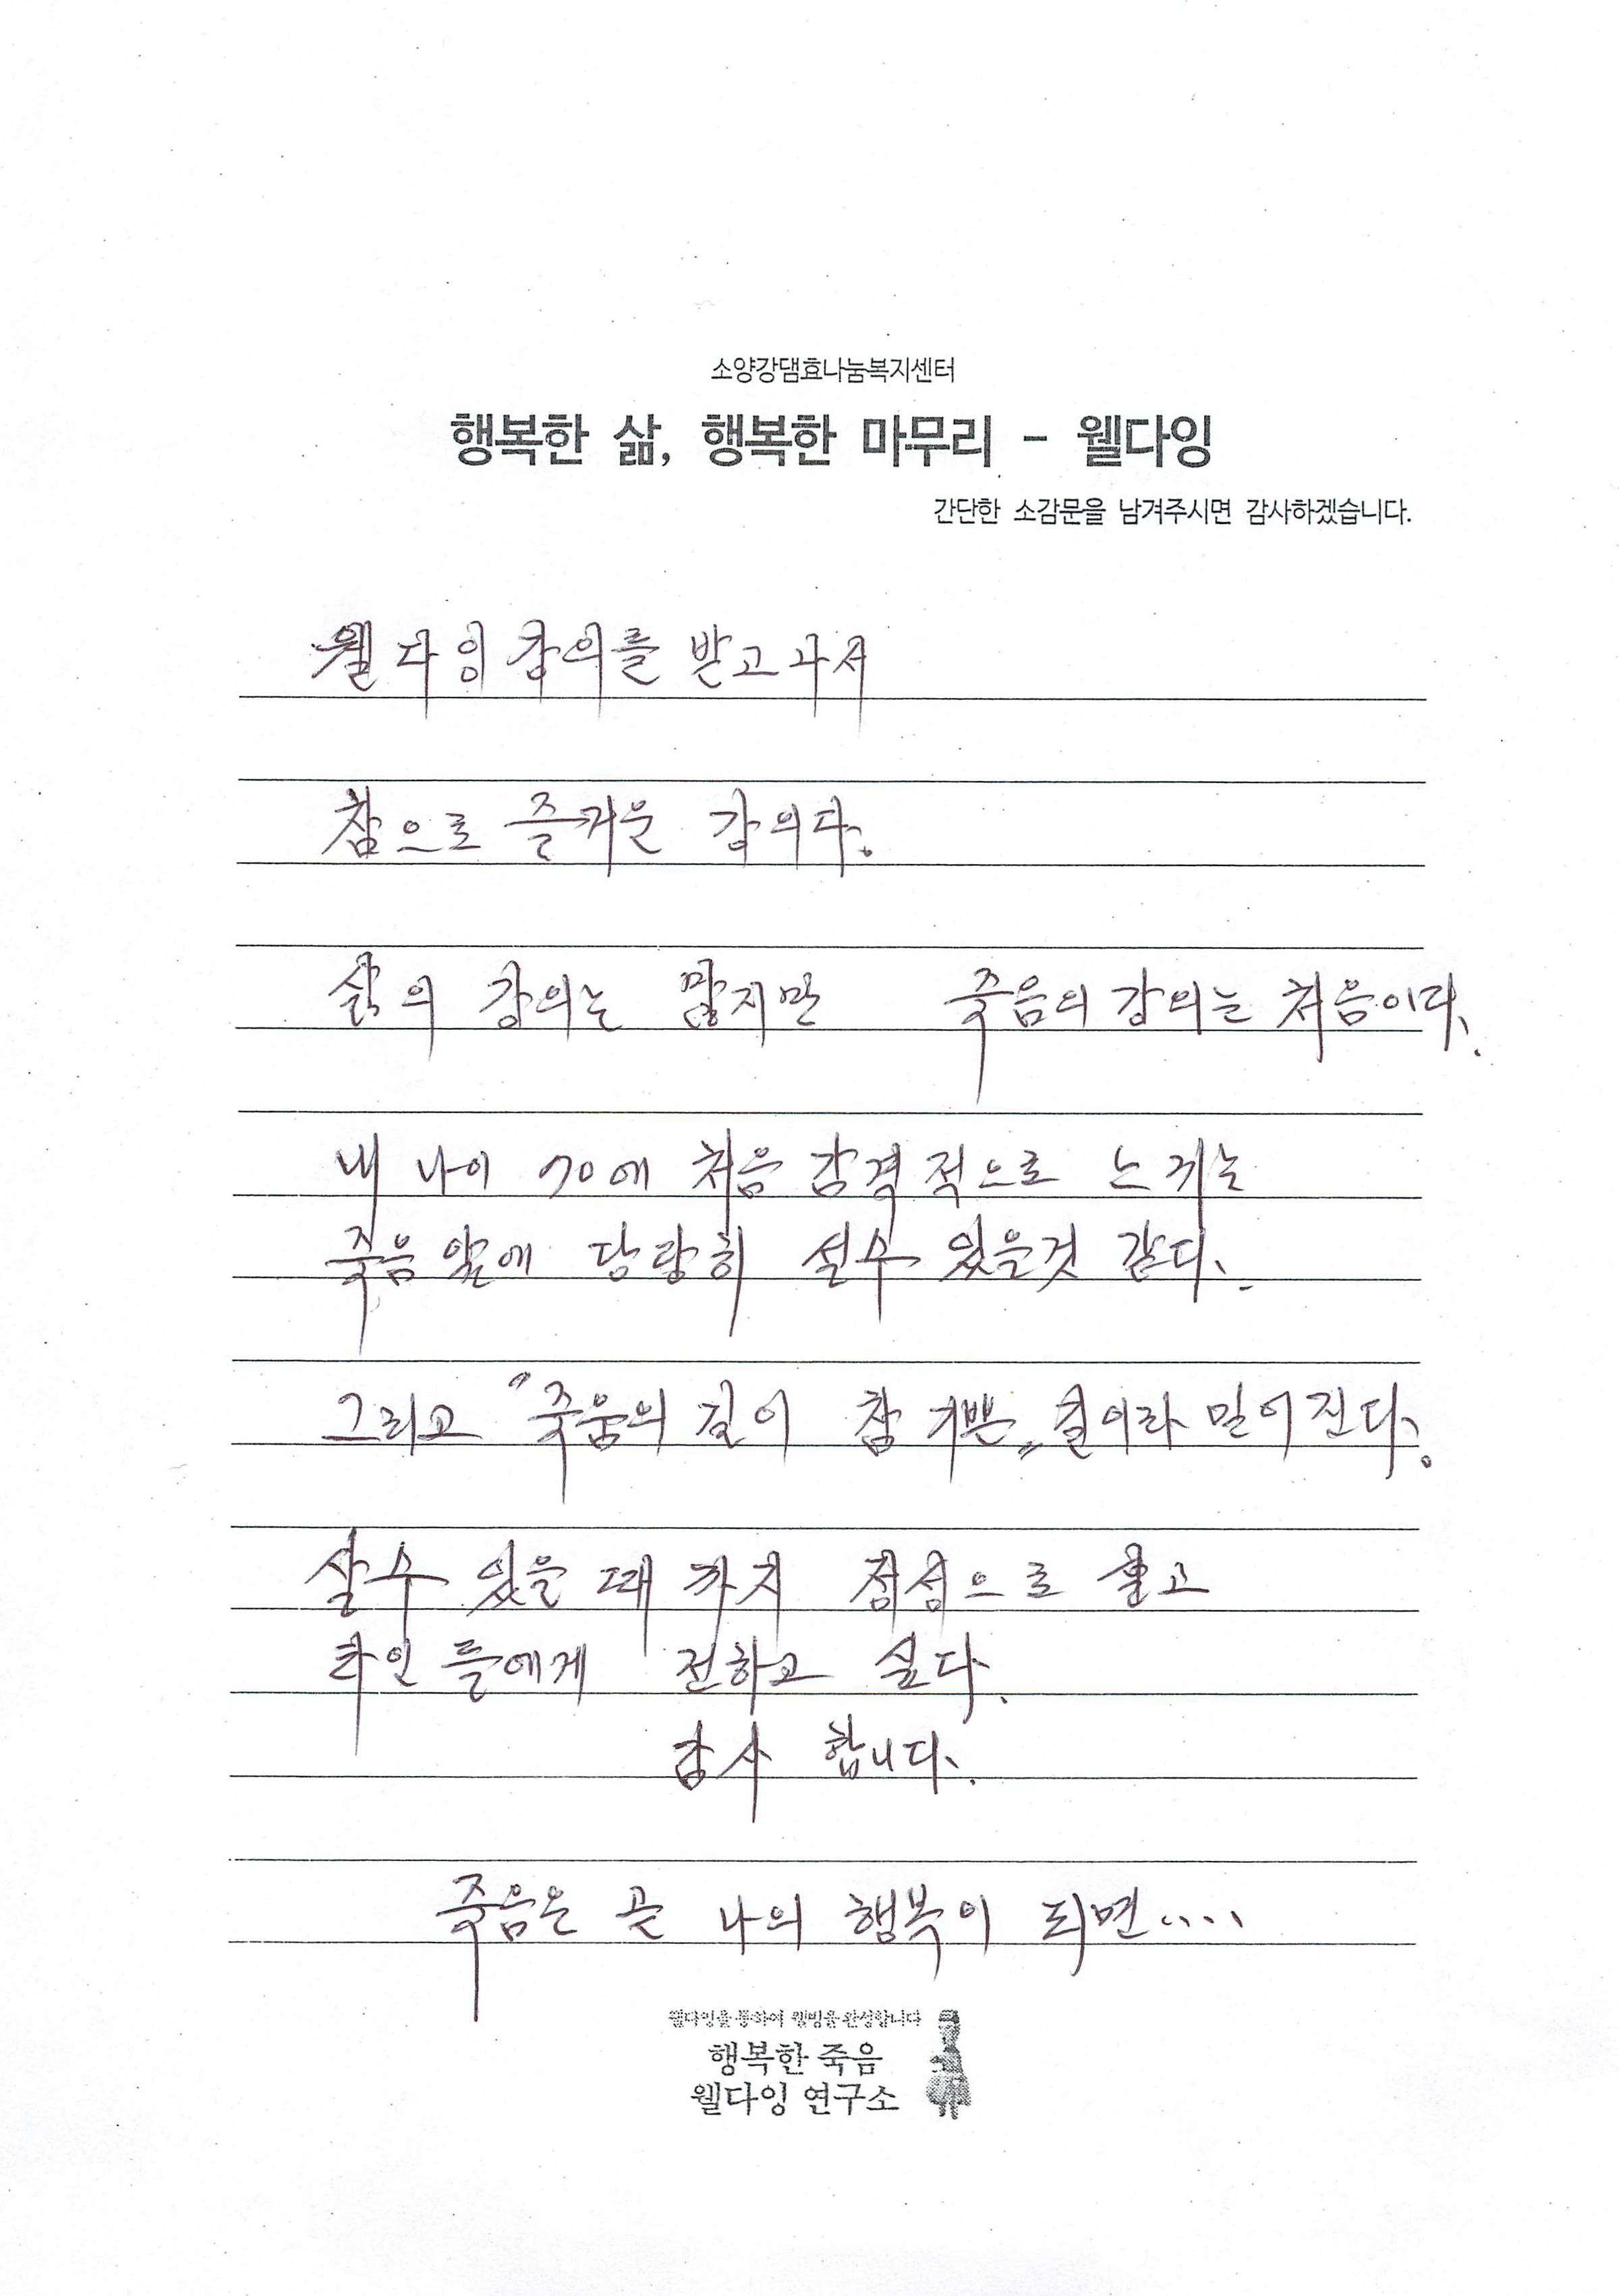 소양강댐효나눔복지센터
행복한 삶, 행복한 마무리 - 웰다잉
간단한 소감문을 남겨주시면 감사하겠습니다.
웰다잉 강의를 받고나서
참으로 즐거운 강의다.
삶의 강의는 많지만 죽음의 강의는 처음이다.
내 나이 70에 처음 감격적으로 느끼는
죽음 앞에 당당히 설수 있을것 같다.
그리고 "죽움의 길이 참 기쁜" 길이라 믿어진다.
살수 있을 때 까지 정성으로 살고
타인 들에게 전하고 싶다.
감사 합니다.
죽음은 곧 나의 행복이 되면....
웰다잉을 통하여 웰빙을 완성합니다
행복한 죽음
웰다잉 연구소